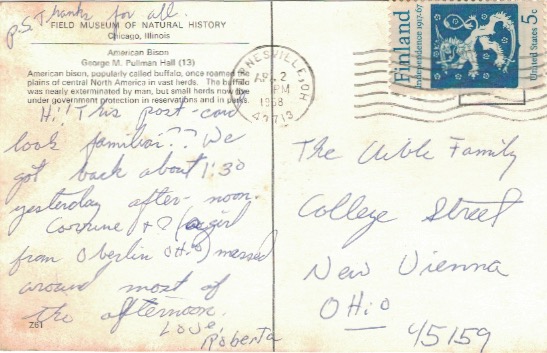 P.S. Thanks for all.
FIELD MUSEUM OF NATURAL HISTORY
Chicago, Illinois
American Bison
George M. Pullman Hall (13)
American bison, popularly called buffalo, once roamed the
plains of central North America in vast herds. The buffalo
was nearly exterminated by man, but small herds now live
under government protection in reservations and in parks.
Hi! This post-card
look familiar?? We
got back about 1:30
yesterday after-noon.
Corrine + I (a girl
from Oberlin OHiO) messed
around most of
the afternoon.
Love,
Roberta
Z61
APR 2
PM
1968
45713
Finland
Independence 1917-67
United States 5c
The Uible Family
College Street
New Vienna
OHio
45159